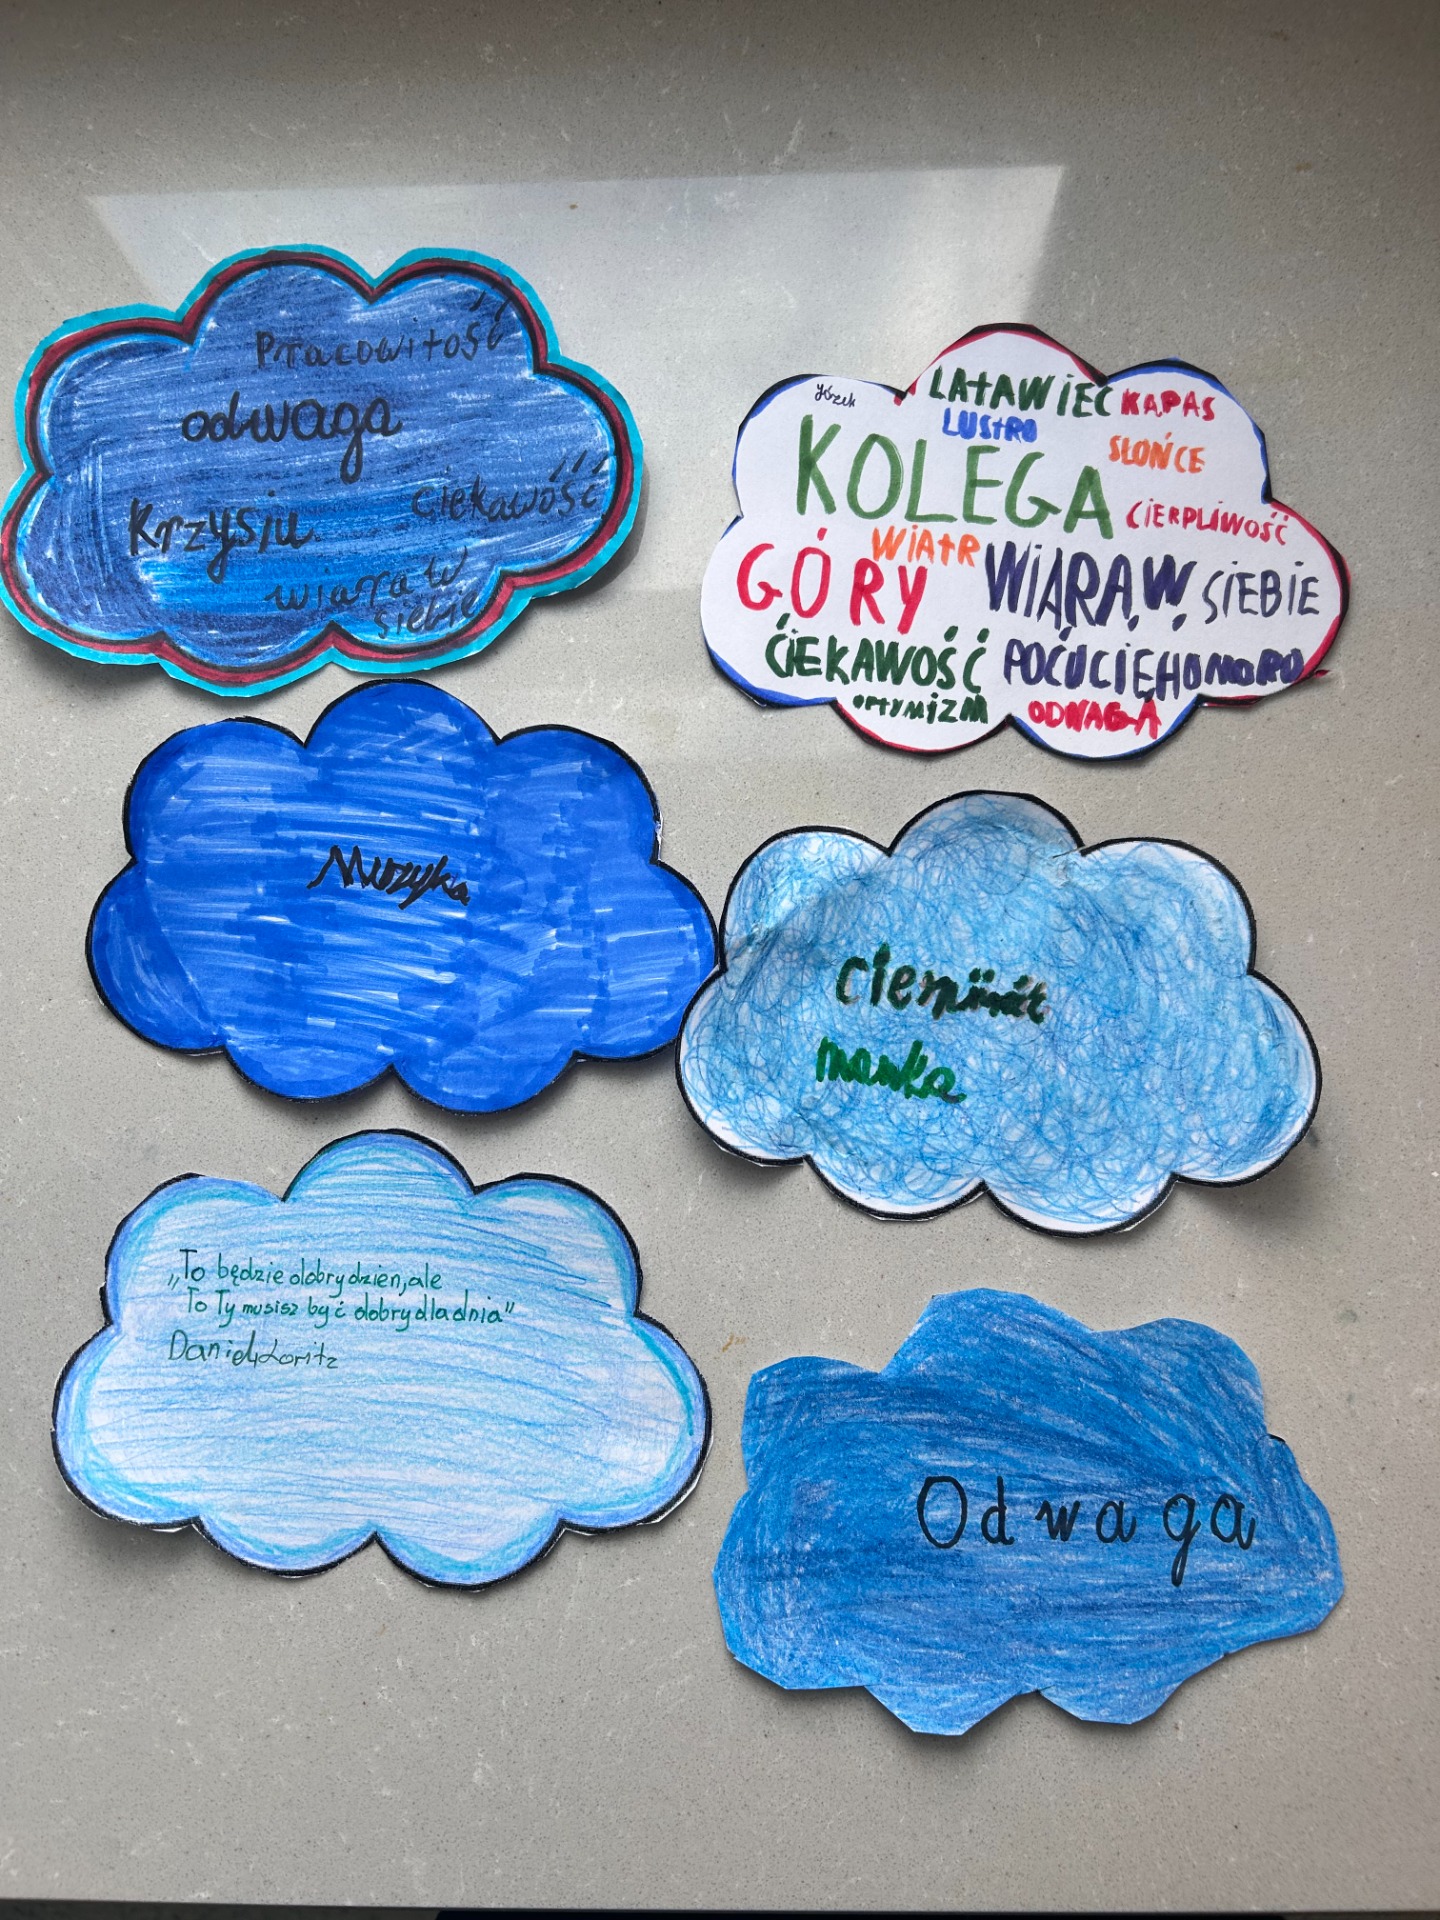 Pracowitość
odwaga
Krzysiu
ciekawość
wiara w
siebie
Józek
LATAWIEC KAPAS
LUSTRO
SŁOŃCE
KOLEGA
CIERPLIWOŚĆ
WIATR
GÓRY WIARA W SIEBIE
CIEKAWOŚĆ POĆUCIĘHOMORO
OPTYMIZM ODWAGA
Muzyka
„To będzie dobry dzien, ale
To Ty musisz być dobry dla dnia”
Daniel
Odwaga